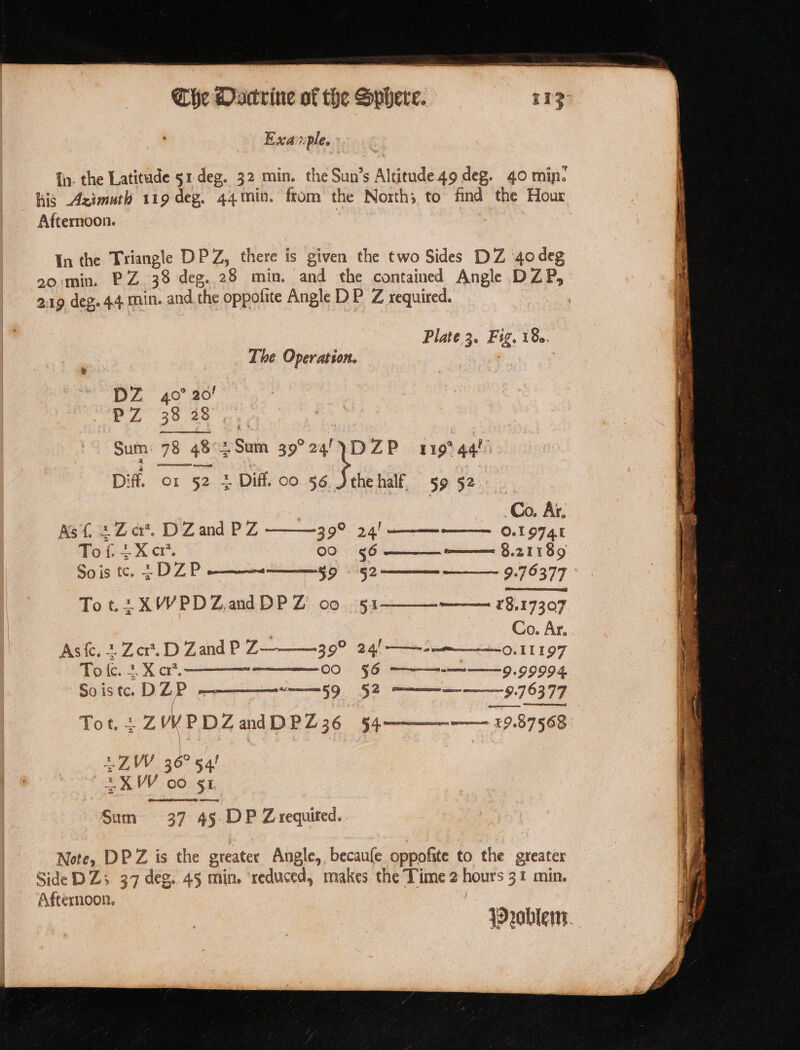 The Doctrine of the Sphere. 113
Example.
In the Latitude 51 deg. 32 min. the Sun's Altitude 49 deg. 40 min.
his Azimuth 119 deg. 44 min. from the North; to find the Hour
Afternoon.
In the Triangle DPZ, there is given the two Sides DZ 40 deg
20 min. PZ 38 deg. 28 min. and the contained Angle DZP,
219 deg. 44 min. and the oppoſite Angle DP Z required.
Plate 3. Fig. 18.
The Operation.
DZ 40° 20'
PZ 38 28
Sum 78 48 ½ Sum 39° 24' } DZP 119° 44'
Diff. 01 52 ½ Diff. 00 56 } the half 59 52
Co. Ar.
As ſ. ½ Z crˢ. DZ and PZ ——39° 24' —— 0.19741
To ſ. ½ X crˢ. 00 56 —— 8.21189
So is tc. ½ DZP ——59 52 —— 9.76377
To t. ½ XVVPDZ and DPZ 00 51 —— 18.17307
Co. Ar.
As ſc. ½ Z crˢ. D Z and P Z ——39° 24' ——0.11197
To ſc. ½ X crˢ. ——00 56 ——9.99994
So is tc. DZP ——59 52 ——9.76377
To t. ½ ZVVPDZ and DPZ 36 54 —— 19.87568
½ZVV 36° 54'
½XVV 00 51
Sum 37 45 DP Z required.
Note, DPZ is the greater Angle, becauſe oppoſite to the greater
Side DZ; 37 deg. 45 min. reduced, makes the Time 2 hours 31 min.
Afternoon.
Problem